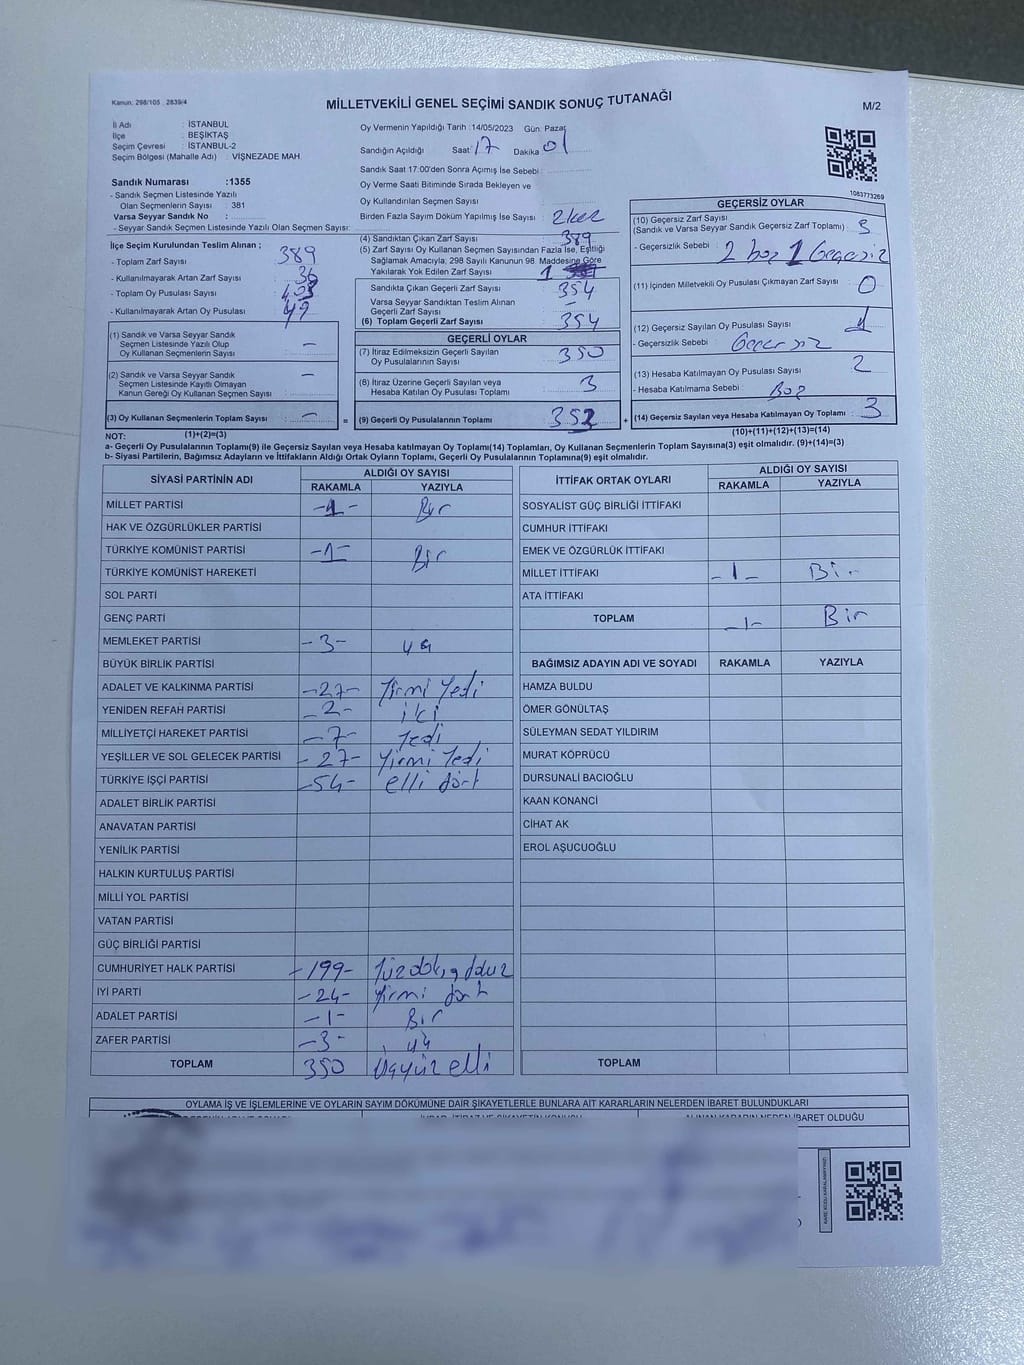 Kanun: 298/105 2839/4
MİLLETVEKİLİ GENEL SEÇİMİ SANDIK SONUÇ TUTANAĞI
M/2
İl Adı : İSTANBUL
İlçe : BEŞİKTAŞ
Seçim Çevresi : İSTANBUL-2
Seçim Bölgesi (Mahalle Adı) : VİŞNEZADE MAH.
Sandık Numarası :1355
- Sandık Seçmen Listesinde Yazılı
Olan Seçmenlerin Sayısı : 381
Varsa Seyyar Sandık No :
- Seyyar Sandık Seçmen Listesinde Yazılı Olan Seçmen Sayısı:
Oy Vermenin Yapıldığı Tarih :14/05/2023 Gün: Pazar
Sandığın Açıldığı Saat: 17 Dakika: 01
Sandık Saat 17:00'den Sonra Açımış İse Sebebi:
Oy Verme Saati Bitiminde Sırada Bekleyen ve
Oy Kullandırılan Seçmen Sayısı :
Birden Fazla Sayım Döküm Yapılmış İse Sayısı : 2 kez
1083773269
İlçe Seçim Kurulundan Teslim Alınan ;
- Toplam Zarf Sayısı : 389
- Kullanılmayarak Artan Zarf Sayısı : 36
- Toplam Oy Pusulası Sayısı :
- Kullanılmayarak Artan Oy Pusulası : 49
(1) Sandık ve Varsa Seyyar Sandık
Seçmen Listesinde Yazılı Olup
Oy Kullanan Seçmenlerin Sayısı : -
(2) Sandık ve Varsa Seyyar Sandık
Seçmen Listesinde Kayıtlı Olmayan
Kanun Gereği Oy Kullanan Seçmen Sayısı : -
(3) Oy Kullanan Seçmenlerin Toplam Sayısı : - =
(4) Sandıktan Çıkan Zarf Sayısı : 389
(5) Zarf Sayısı Oy Kullanan Seçmen Sayısından Fazla İse, Eşitliği
Sağlamak Amacıyla, 298 Sayılı Kanunun 98. Maddesine Göre
Yakılarak Yok Edilen Zarf Sayısı : 1
Sandıkta Çıkan Geçerli Zarf Sayısı : 354
Varsa Seyyar Sandıktan Teslim Alınan
Geçerli Zarf Sayısı : -
(6) Toplam Geçerli Zarf Sayısı : 354
GEÇERLİ OYLAR
(7) İtiraz Edilmeksizin Geçerli Sayılan
Oy Pusulalarının Sayısı : 350
(8) İtiraz Üzerine Geçerli Sayılan veya
Hesaba Katılan Oy Pusulası Toplamı : 3
(9) Geçerli Oy Pusulalarının Toplamı : 352 +
GEÇERSİZ OYLAR
(10) Geçersiz Zarf Sayısı
(Sandık ve Varsa Seyyar Sandık Geçersiz Zarf Toplamı) : 3
- Geçersizlik Sebebi : 2 boş 1 Geçersiz
(11) İçinden Milletvekili Oy Pusulası Çıkmayan Zarf Sayısı : 0
(12) Geçersiz Sayılan Oy Pusulası Sayısı : 1
- Geçersizlik Sebebi : Geçersiz
(13) Hesaba Katılmayan Oy Pusulası Sayısı : 2
- Hesaba Katılmama Sebebi : Boş
(14) Geçersiz Sayılan veya Hesaba Katılmayan Oy Toplamı : 3
NOT: (1)+(2)=(3) (10)+(11)+(12)+(13)=(14)
a- Geçerli Oy Pusulalarının Toplamı(9) ile Geçersiz Sayılan veya Hesaba katılmayan Oy Toplamı(14) Toplamları, Oy Kullanan Seçmenlerin Toplam Sayısına(3) eşit olmalıdır. (9)+(14)=(3)
b- Siyasi Partilerin, Bağımsız Adayların ve İttifakların Aldığı Ortak Oyların Toplamı, Geçerli Oy Pusulalarının Toplamına(9) eşit olmalıdır.
SİYASİ PARTİNİN ADI ALDIĞI OY SAYISI
RAKAMLA YAZIYLA
MİLLET PARTİSİ -1- Bir
HAK VE ÖZGÜRLÜKLER PARTİSİ
TÜRKİYE KOMÜNİST PARTİSİ -1- Bir
TÜRKİYE KOMÜNİST HAREKETİ
SOL PARTİ
GENÇ PARTİ
MEMLEKET PARTİSİ -3- üç
BÜYÜK BİRLİK PARTİSİ
ADALET VE KALKINMA PARTİSİ -27- Yirmi Yedi
YENİDEN REFAH PARTİSİ -2- iki
MİLLİYETÇİ HAREKET PARTİSİ -7- Yedi
YEŞİLLER VE SOL GELECEK PARTİSİ -27- Yirmi Yedi
TÜRKİYE İŞÇİ PARTİSİ -54- elli dört
ADALET BİRLİK PARTİSİ
ANAVATAN PARTİSİ
YENİLİK PARTİSİ
HALKIN KURTULUŞ PARTİSİ
MİLLİ YOL PARTİSİ
VATAN PARTİSİ
GÜÇ BİRLİĞİ PARTİSİ
CUMHURİYET HALK PARTİSİ -199- Yüz doksan dokuz
İYİ PARTİ -24- Yirmi dört
ADALET PARTİSİ -1- Bir
ZAFER PARTİSİ -3- üç
TOPLAM 350 Üçyüz elli
İTTİFAK ORTAK OYLARI ALDIĞI OY SAYISI
RAKAMLA YAZIYLA
SOSYALİST GÜÇ BİRLİĞİ İTTİFAKI
CUMHUR İTTİFAKI
EMEK VE ÖZGÜRLÜK İTTİFAKI
MİLLET İTTİFAKI -1- Bir
ATA İTTİFAKI
TOPLAM -1- Bir
BAĞIMSIZ ADAYIN ADI VE SOYADI RAKAMLA YAZIYLA
HAMZA BULDU
ÖMER GÖNÜLTAŞ
SÜLEYMAN SEDAT YILDIRIM
MURAT KÖPRÜCÜ
DURSUNALİ BACIOĞLU
KAAN KONANCİ
CİHAT AK
EROL AŞUCUOĞLU
TOPLAM
OYLAMA İŞ VE İŞLEMLERİNE VE OYLARIN SAYIM DÖKÜMÜNE DAİR ŞİKAYETLERLE BUNLARA AİT KARARLARIN NELERDEN İBARET BULUNDUKLARI
İHBAR, İTİRAZ VE ŞİKAYETİN KONUSU ALINAN KARARIN NEDEN İBARET OLDUĞU